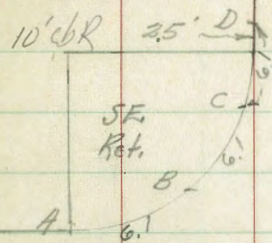 10' cbR 25' D
6!
C
SE.
Ret. 6!
B
A 6!